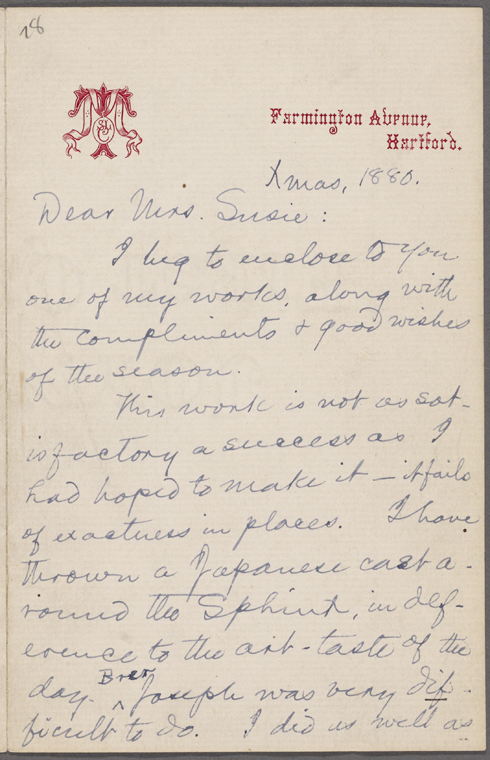 28
SLC
Farmington Avenue,
Hartford.
Xmas, 1880.
Dear Mrs. Susie:
I beg to enclose to you
one of my works, along with
the compliments & good wishes
of the season.
This work is not as sat-
isfactory a success as I
had hoped to make it — it fails
of exactness in places. I have
thrown a Japanese cast a-
round the Sphinx, in def-
erence to the art-taste of the
day. Brer Joseph was very dif-
ficult to do. I did as well as